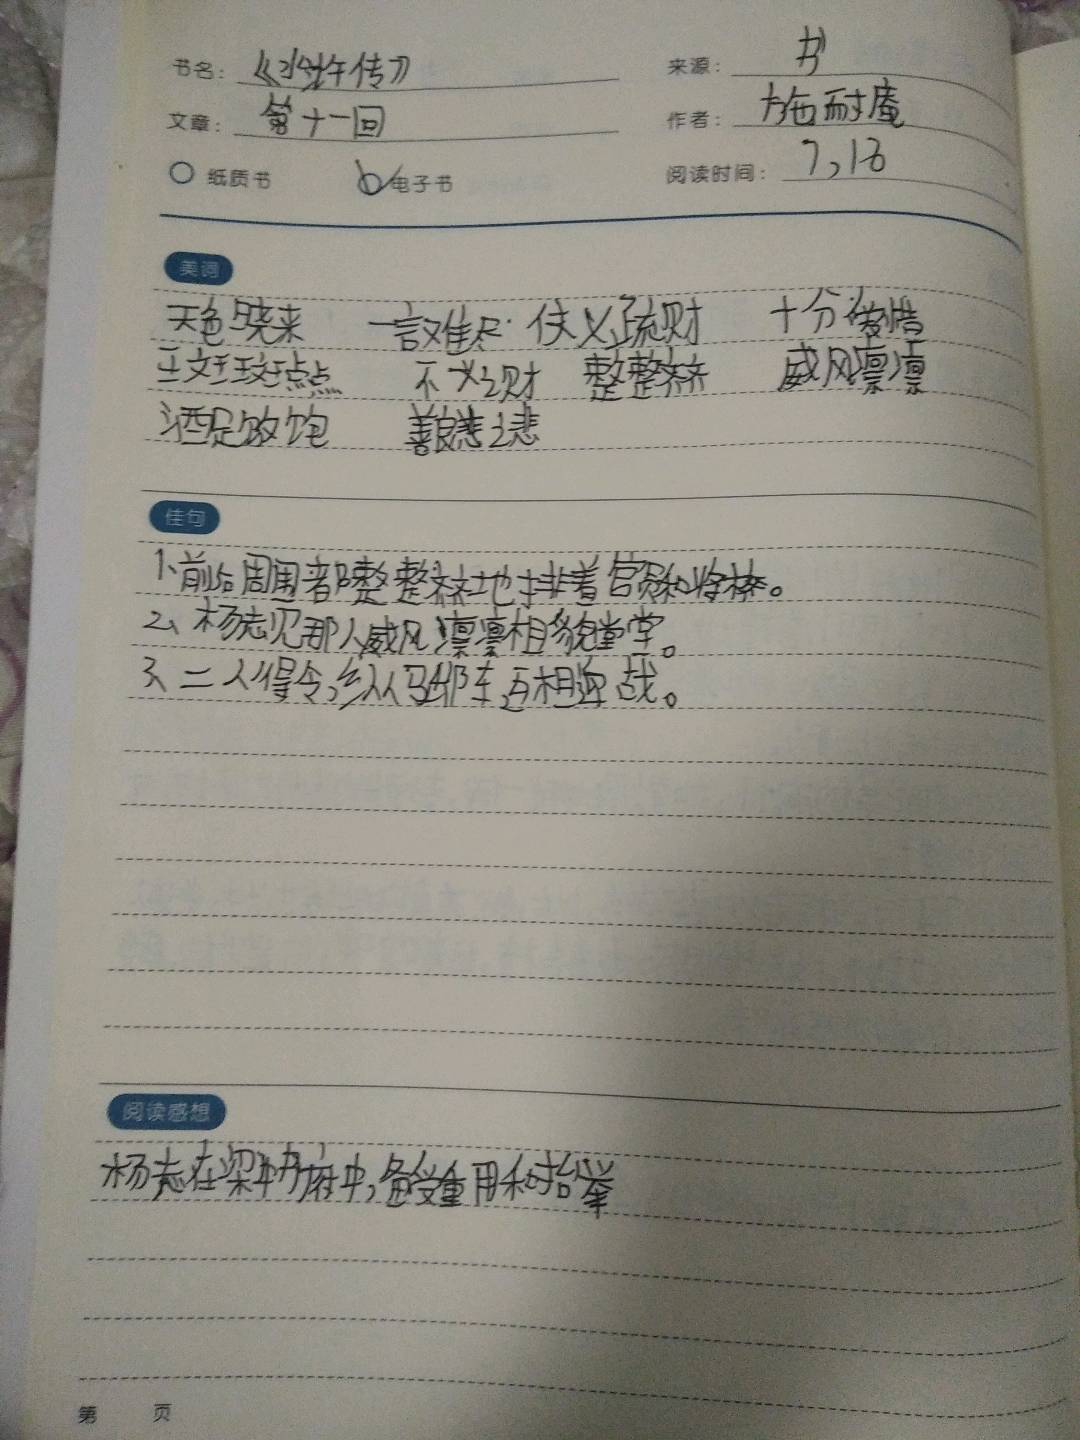 书名：《水浒传》 来源：书
文章：第十一回 作者：施耐庵
纸质书 电子书 阅读时间：7,18
美词
天色晓来 一言难尽 仗义疏财 十分爱惜
斑斑点点 不义之财 整整齐齐 威风凛凛
酒足饭饱 之悲
佳句
1、前后周围都整整齐齐地排着官员和将
2、杨志见那人威风凛凛相貌堂堂。
3、二人得令，纵马 互相迎战。
阅读感想
杨志在梁中书府中，备受重用和抬举
第 页